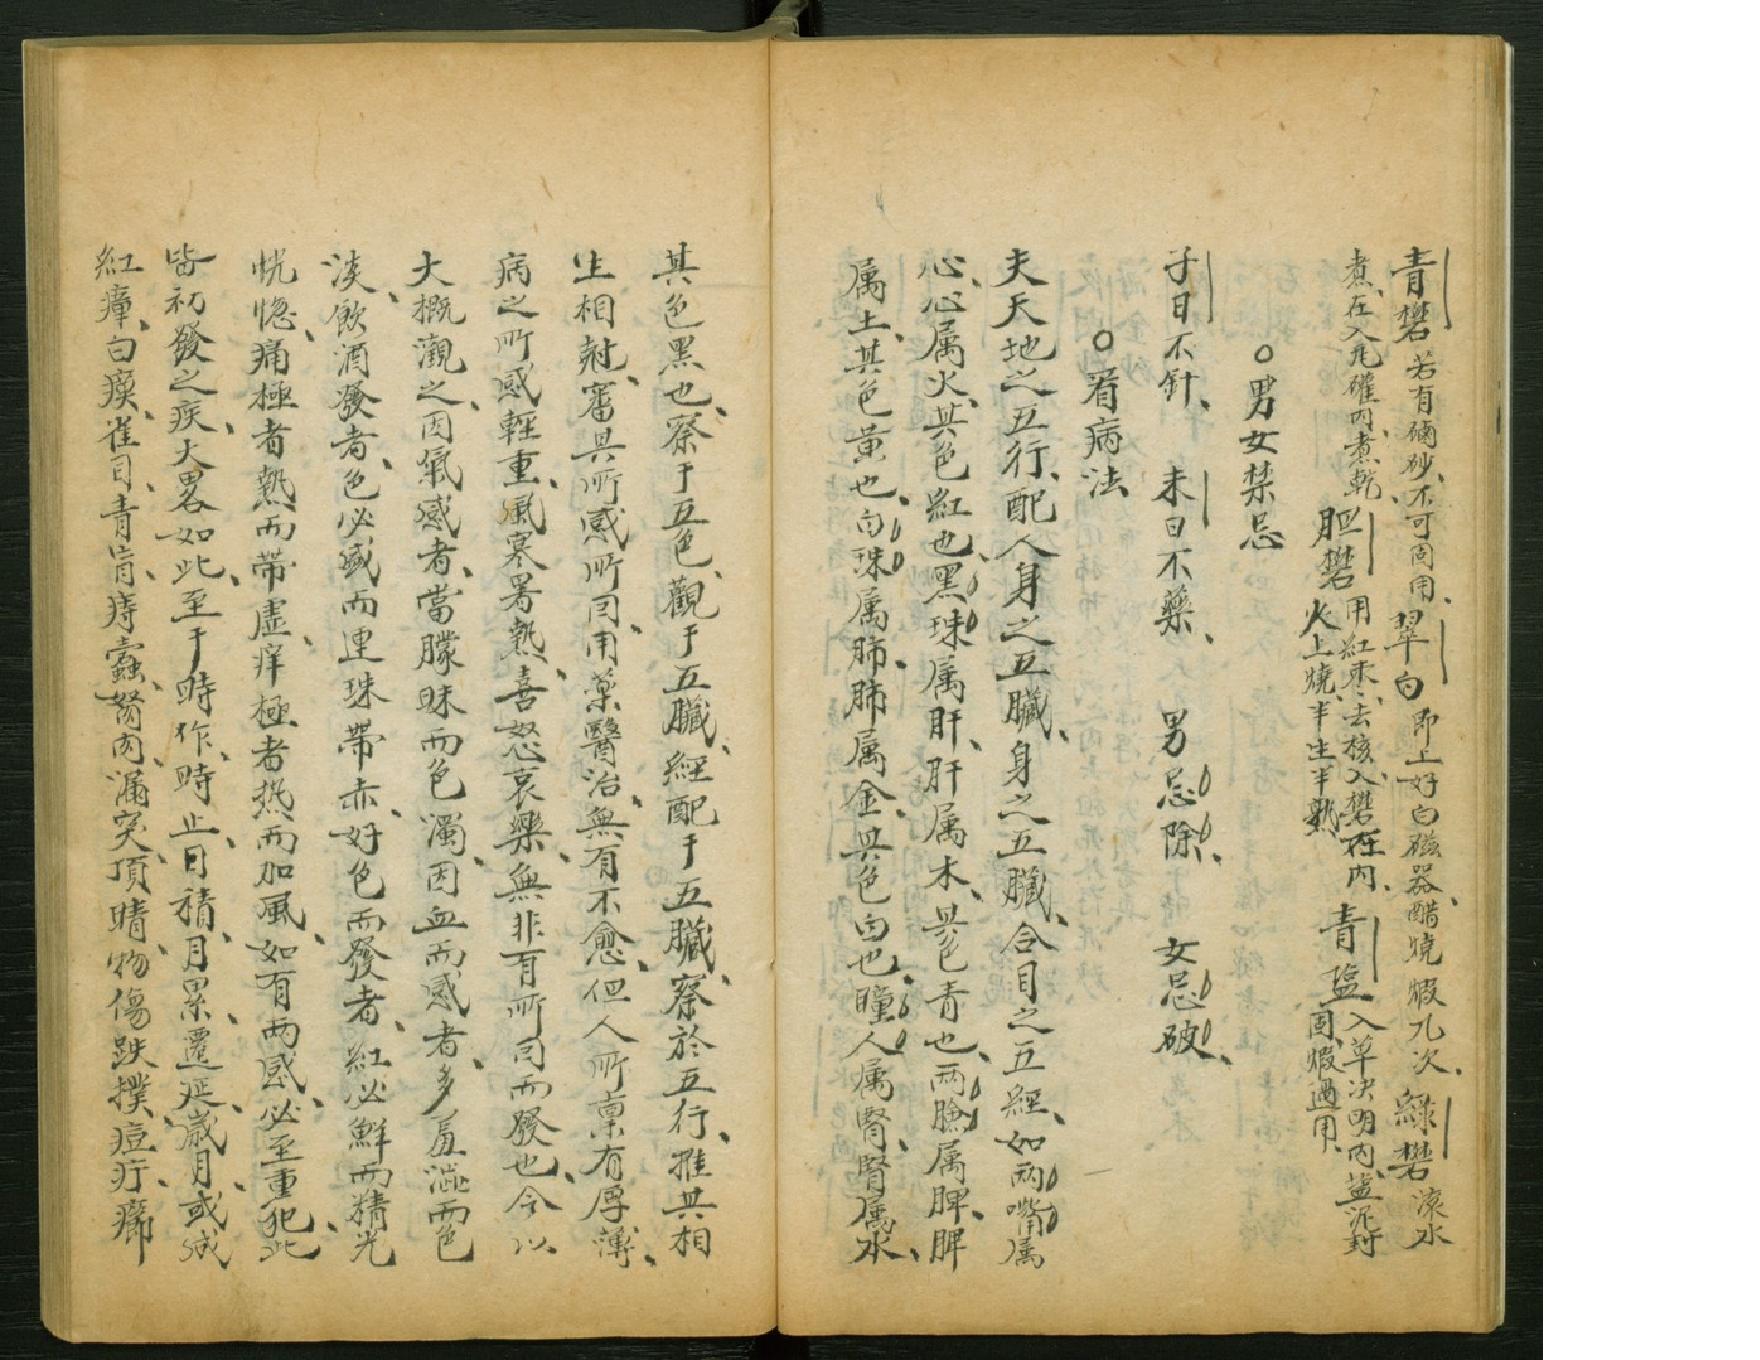 青礬若有硇砂、不可同用、翠白即上好白磁器、醋燒煆九次、綠礬滚水
煮、在入九礶內煮乾、胆礬用紅枣、去核入礬在內、火上燒、半生半熟青塩入草决明內、盐泥封固、煆過用、
○男女禁忌
子日不針、未日不藥、男忌除、女忌破、
○看病法
夫天地之五行、配人身之五臟、身之五臟、合目之五經、如兩嘴属
心、心属火、其色紅也、黑珠属肝、肝属木、其色青也、兩臉属脾、脾
属土、其色黄也、白珠属肺、肺属金、其色白也、瞳人属腎、腎属水、
其色黑也、察于五色、觀于五臟、經配于五臟、察於五行、推其相
生相尅、審其所感所同、用藥醫治、無有不愈、但人所禀有厚薄、
病之所感輕重、風寒暑熱、喜怒哀樂、無非有所同而發也、今以
大概觀之、因氣感者、當朦昧而色濁、因血而感者、多羞澁而色
淡、飲酒發者、色必盛而連珠帶赤、好色而發者、紅必鮮而精光
恍惚、痛極者熱而帶虛、痒極者热而加風、如有兩感、必至重犯、此
皆初發之疾、大畧如此、至于時作、時止、日積、月累、遷延、歲月、或成
紅瘴、白瘼、雀目、青肓、痔蠹、胬肉、漏突、頂睛、物傷跌撲、痘疔癤